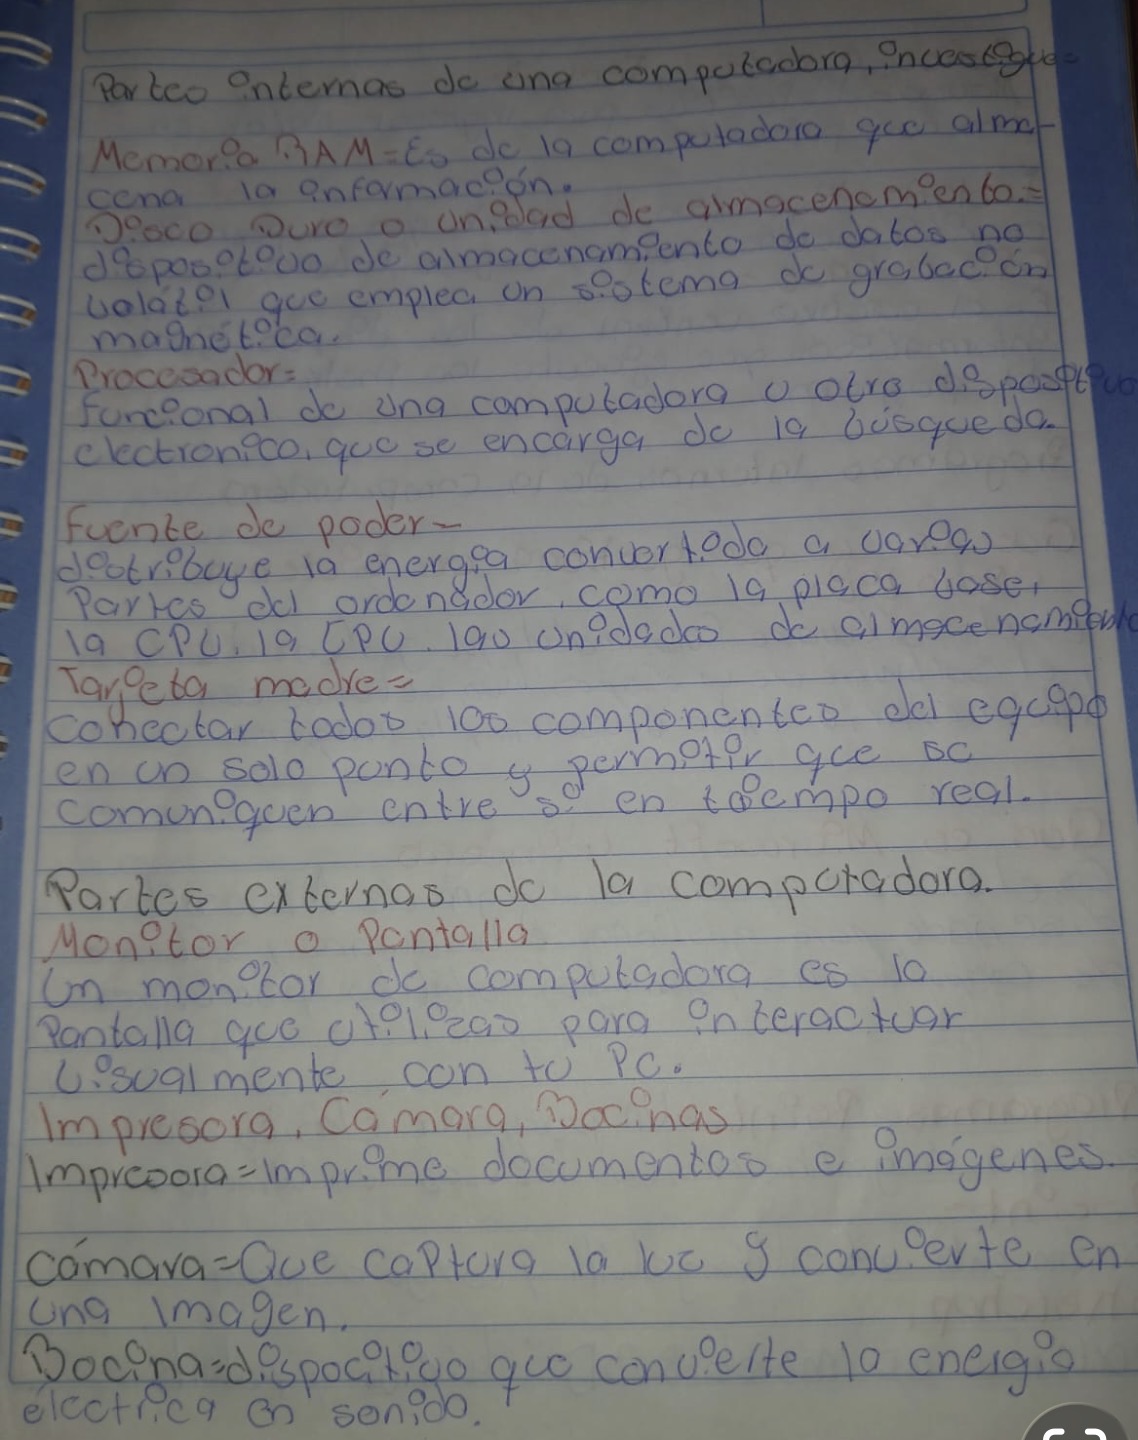 Partes internas de una computadora, investigue=
Memoria RAM=Es de la computadora que alma-
cena la información.
Disco Duro o unidad de almacenamiento.=
dispositivo de almacenamiento de datos no
volátil que emplea un sistema de grabación
magnética.
Procesador=
funcional de una computadora u otro dispositivo
electronico, que se encarga de la búsqueda.
Fuente de poder-
distribuye la energía convertida a varias
Partes del ordenador, como la placa base,
la CPU, la CPU, las unidades de almacenamiento
Tarjeta madre=
conectar todos los componentes del equipo
en un solo punto y permitir que se
comuniquen entre si en tiempo real.
Partes externas de la computadora.
Monitor o Pantalla
Un monitor de computadora es la
Pantalla que utilizas para interactuar
visualmente con tu PC.
Impresora, Cámara, Bocinas
Impresora=Imprime documentos e imágenes.
cámara=Que captura la luz y convierte en
una imagen.
Bocina=dispocitivo que convierte la energia
eléctrica en sonido.